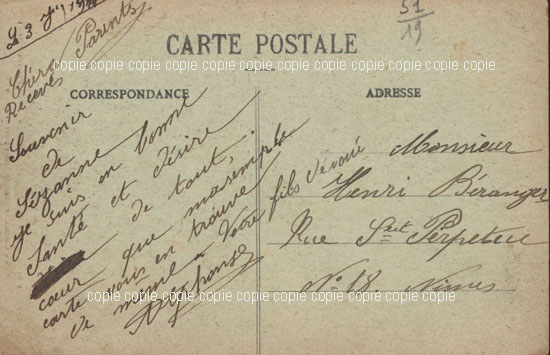 Le 3
51
19
CARTE POSTALE
copie copie copie copie copie copie copie copie copie copie copie
CORRESPONDANCE
ADRESSE
Chers Parents
Recevez
Souvenir
de
Sézanne
je suis en bonne
Santé et désire
de tout
coeur que ma
carte vous en trouve
de même
Votre fils dévoué
Alphonse
copie copie copie copie copie copie copie copie copie copie copie
Monsieur
Henri Béranger
Rue Ste Perpétue
N° 18. Nimes
copie copie copie copie copie copie copie copie copie copie copie